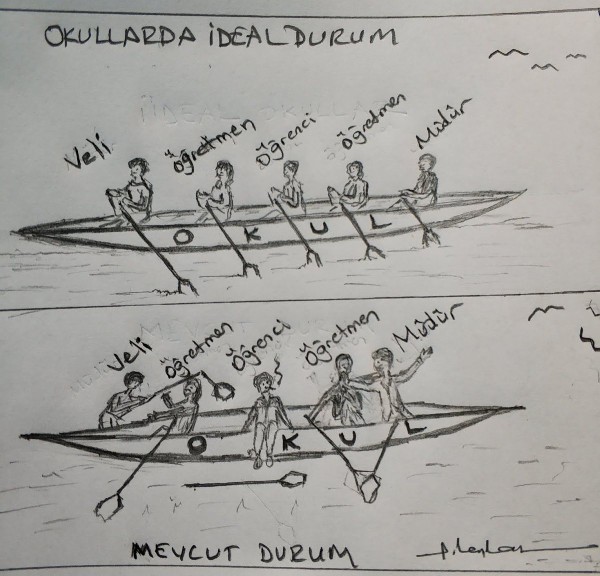 OKULLARDA İDEAL DURUM
Veli Öğretmen Öğrenci Öğretmen Müdür
OKUL
Veli Öğretmen Öğrenci Öğretmen Müdür
OKUL
MEVCUT DURUM